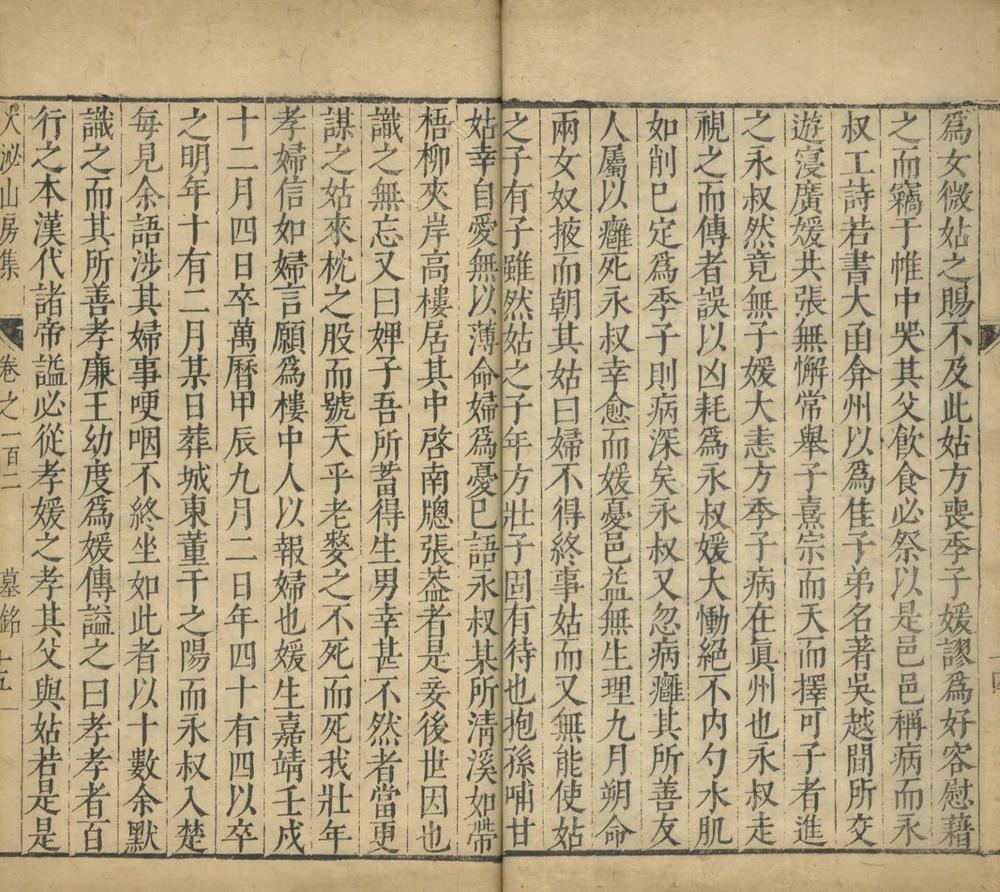 為女微姑之賜不及此姑方喪季子媛謬為好容慰藉
之而竊于帷中哭其父飲食必祭以是邑邑稱病而永
叔工詩若書大函弇州以為佳子弟名著吳越間所交
遊寖廣媛共張無懈常舉子熹宗而夭而擇可子者進
之永叔然竟無子媛大恚方季子病在真州也永叔走
視之而傳者誤以凶耗為永叔媛大慟絕不內勺水肌
如削已定為季子則病深矣永叔又忽病癰其所善友
人屬以癰死永叔幸愈而媛憂邑益無生理九月朔命
兩女奴掖而朝其姑曰婦不得終事姑而又無能使姑
之子有子雖然姑之子年方壯子固有待也抱孫哺甘
姑幸自愛無以薄命婦為憂已語永叔某所清溪如帶
梧柳夾岸高樓居其中啓南牕張葢者是妾後世因也
識之無忘又曰婢子吾所蓄得生男幸甚不然者當更
謀之姑來枕之股而號天乎老嫠之不死而死我壯年
孝婦信如婦言願為樓中人以報婦也媛生嘉靖壬戌
十二月四日卒萬曆甲辰九月二日年四十有四以卒
之明年十有二月某日葬城東董干之陽而永叔入楚
每見余語涉其婦事哽咽不終坐如此者以十數余默
識之而其所善孝廉王幼度為媛傳謚之曰孝孝者百
行之本漢代諸帝謚必從孝媛之孝其父與姑若是是
大泌山房集 卷之一百二 墓銘 十五